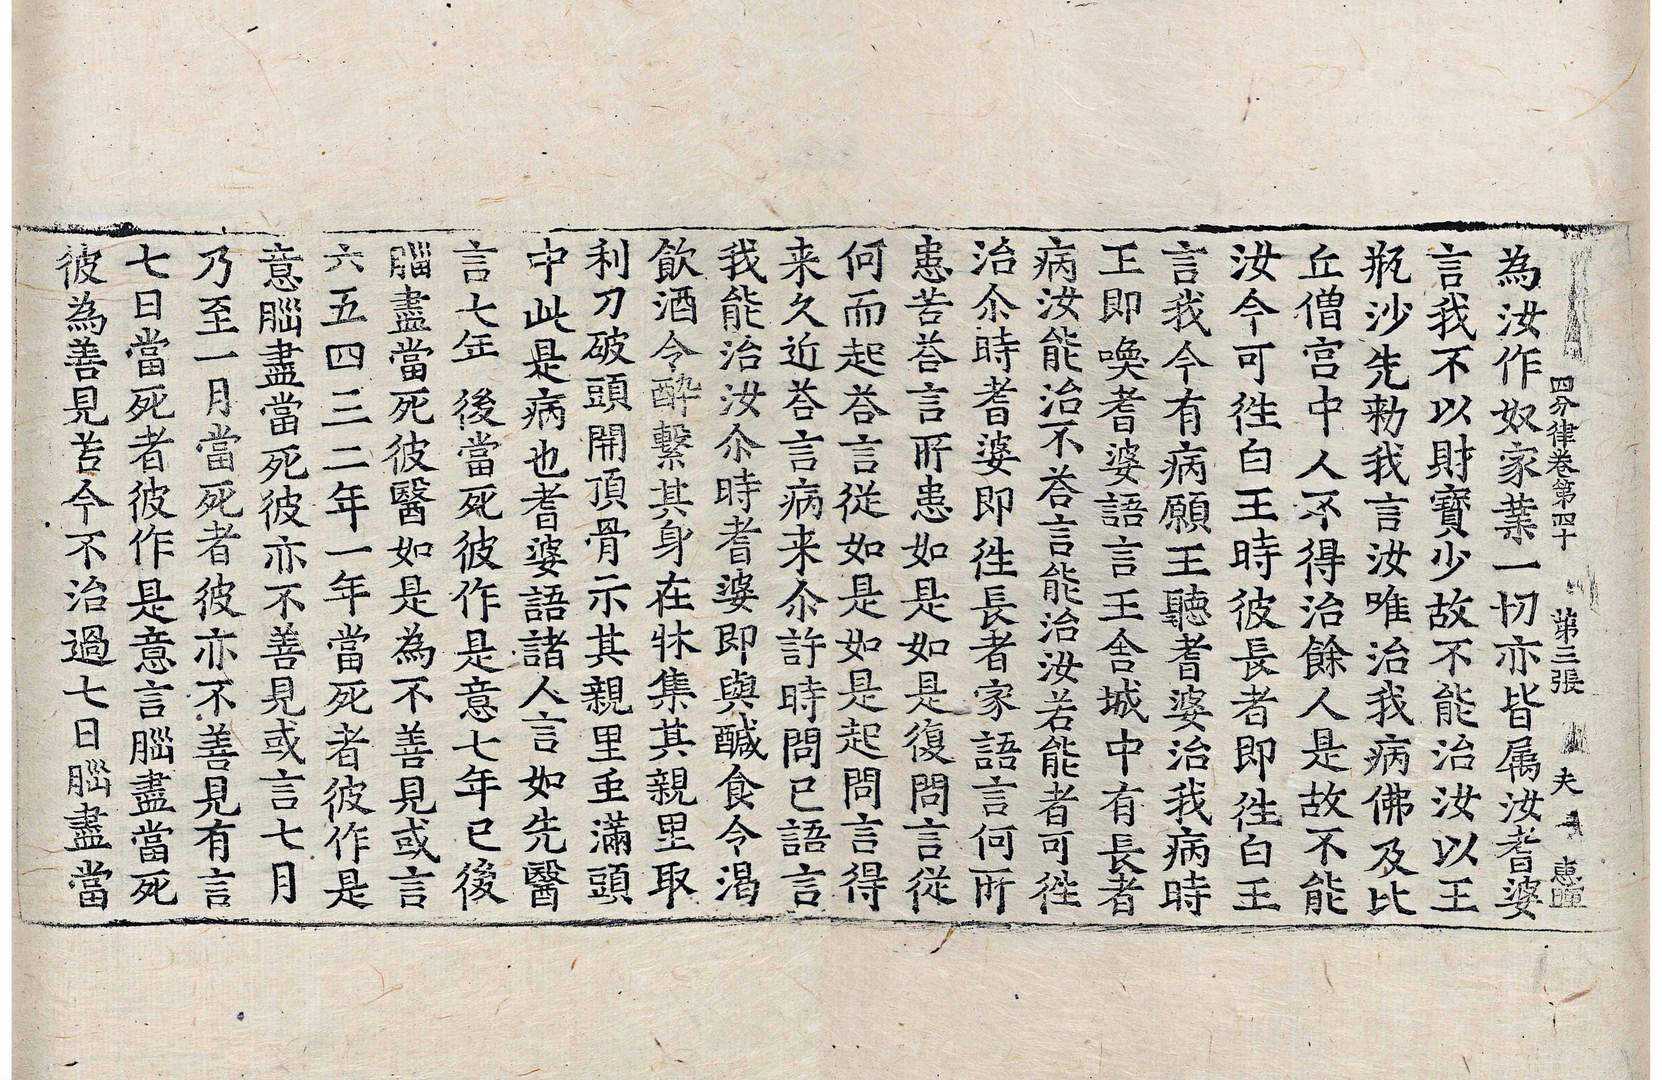 四分律卷第四十 第三張 夫 惠暉
為汝作奴家業一切亦皆属汝耆婆
言我不以財寶少故不能治汝以王
瓶沙先勑我言汝唯治我病佛及比
丘僧宫中人不得治餘人是故不能
汝今可徃白王時彼長者即徃白王
言我今有病願王聽耆婆治我病時
王即喚耆婆語言王舍城中有長者
病汝能治不荅言能治汝若能者可徃
治尒時耆婆即徃長者家語言何所
患苦荅言所患如是如是復問言從
何而起荅言從如是如是起問言得
来久近荅言病来尒許時問已語言
我能治汝尒時耆婆即與醎食令渴
飲酒令醉繫其身在牀集其親里取
利刀破頭開頂骨示其親里虫滿頭
中此是病也耆婆語諸人言如先醫
言七年後當死彼作是意七年已後
腦盡當死彼醫如是為不善見或言
六五四三二年一年當死者彼作是
意腦盡當死彼亦不善見或言七月
乃至一月當死者彼亦不善見有言
七日當死者彼作是意言腦盡當死
彼為善見苦今不治過七日腦盡當